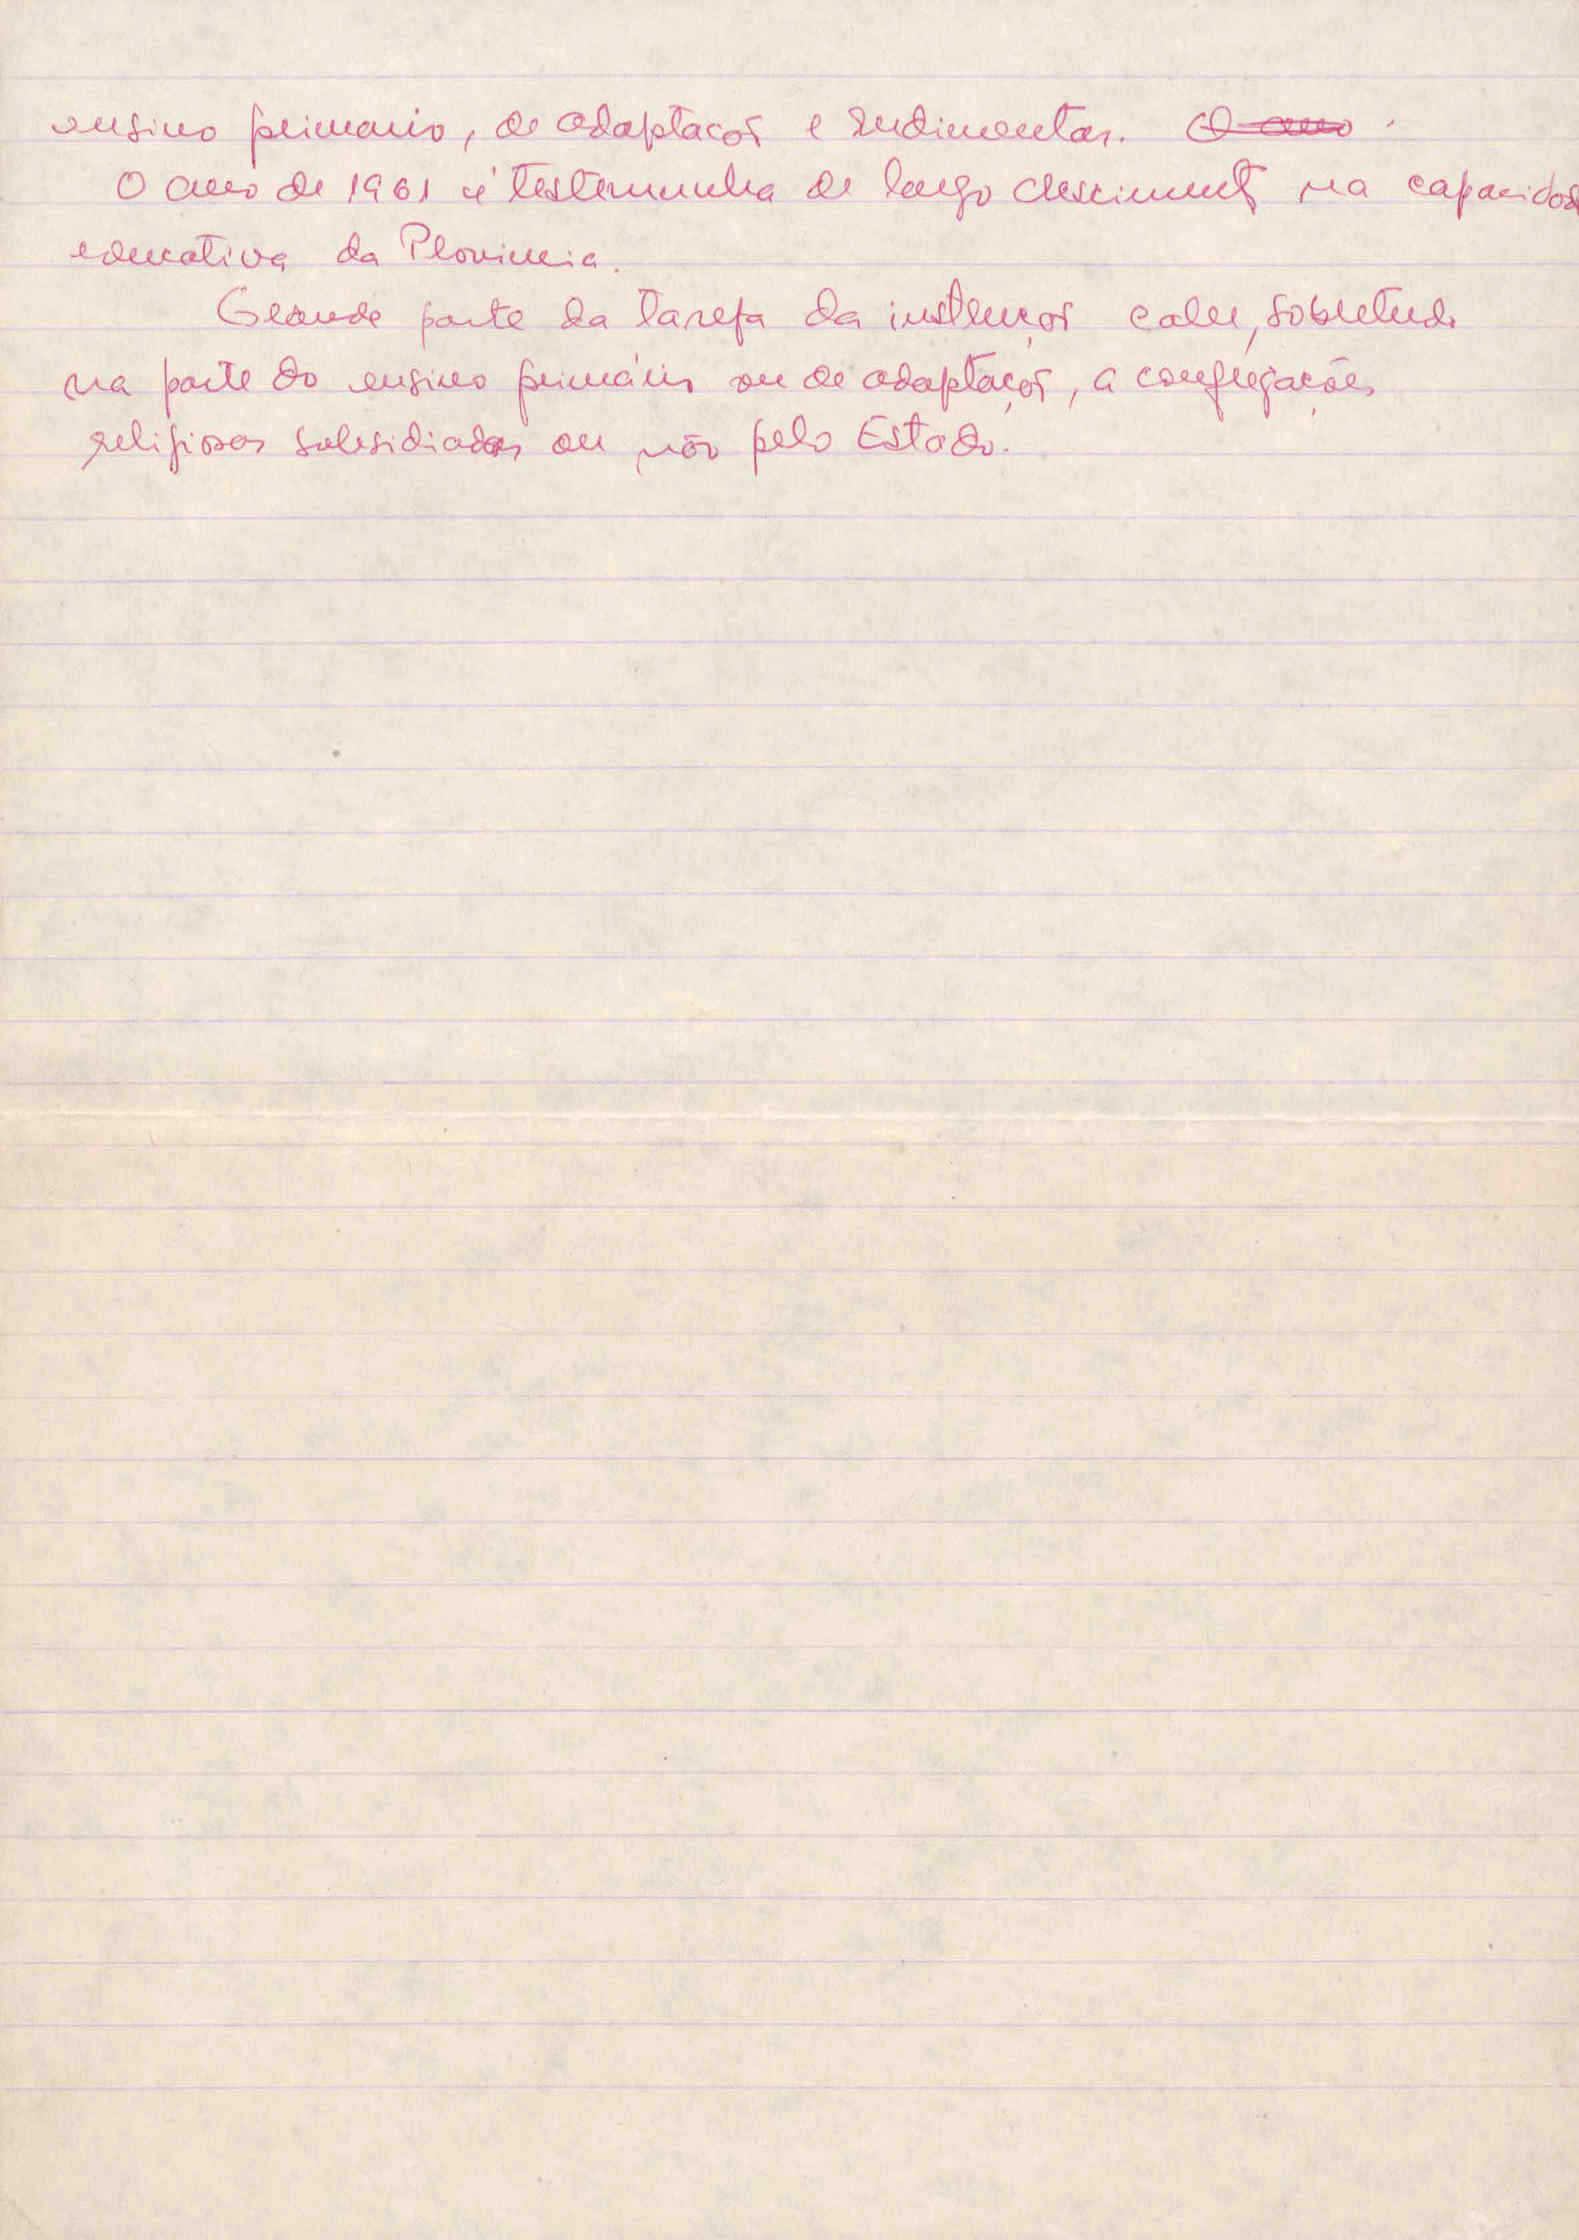 ensino primario, de adaptacão e rudimentar. O ano.
O ano de 1961 é testemunha de largo crescimento na capacidade
educativa da Provincia.
Grande parte da tarefa da instrução cabe, sobretudo
na parte do ensino primário ou de adaptação, a congregações
religiosas subsidiadas ou não pelo Estado.